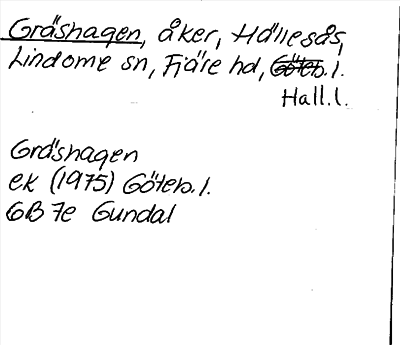 Gräshagen, åker, Hällesås,
Lindome sn, Fjäre hd, Göteb. l.
Hall. l.
Gräshagen
ek (1975) Göteb. l.
6B 7e Gundal